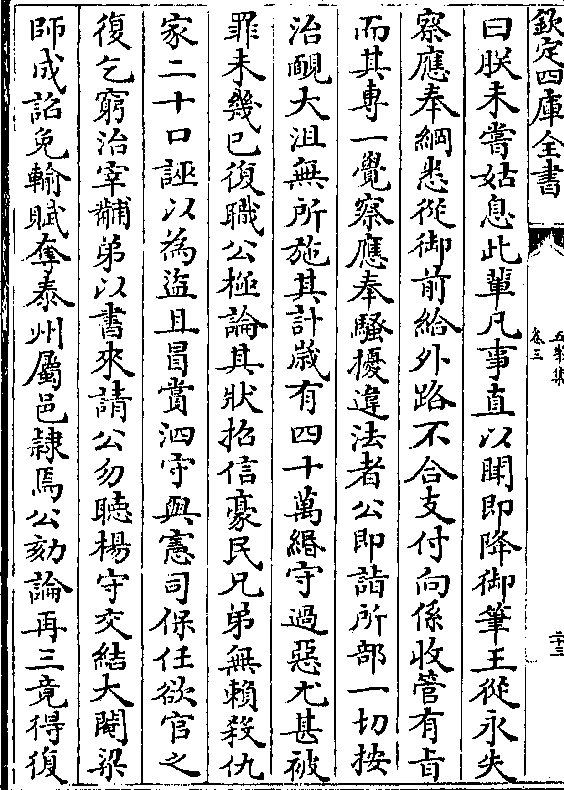 欽定四庫全書
卷三
曰朕未嘗姑息此輩凡事直以聞即降御筆王從永失
察應奉綱悉從御前給外路不合支付向係收管有旨
而其專一覺察應奉騷擾違法者公即詣所部一切按
治靦大沮無所施其計歲有四十萬緡守過惡尤甚被
罪未幾已復職公極論其狀招信豪民兄弟無賴殺仇
家二十口誣以為盜且冒賞泗守與憲司保任欲官之
復乞窮治宰黼弟以書來請公勿聽楊守交結大閹梁
師成詔免輸賦奪泰州屬邑隸焉公劾論再三竟得復